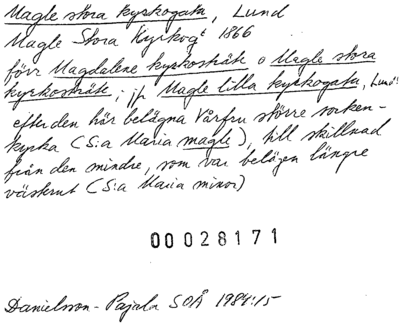 Magle stora kyrkogata, Lund
Magle Stora Kyrkog:t 1866
förr Magdalene kyrkosträte o Magle stora
kyrkosträte; jfr Magle lilla kyrkogata, Lund:
efter den här belägna Vårfru större socken-
kyrka (S:a Maria magle), till skillnad
från den mindre, som var belägen längre
västerut (S:a Maria minor)
00028171
Danielsson-Pajala SOÅ 1984:15